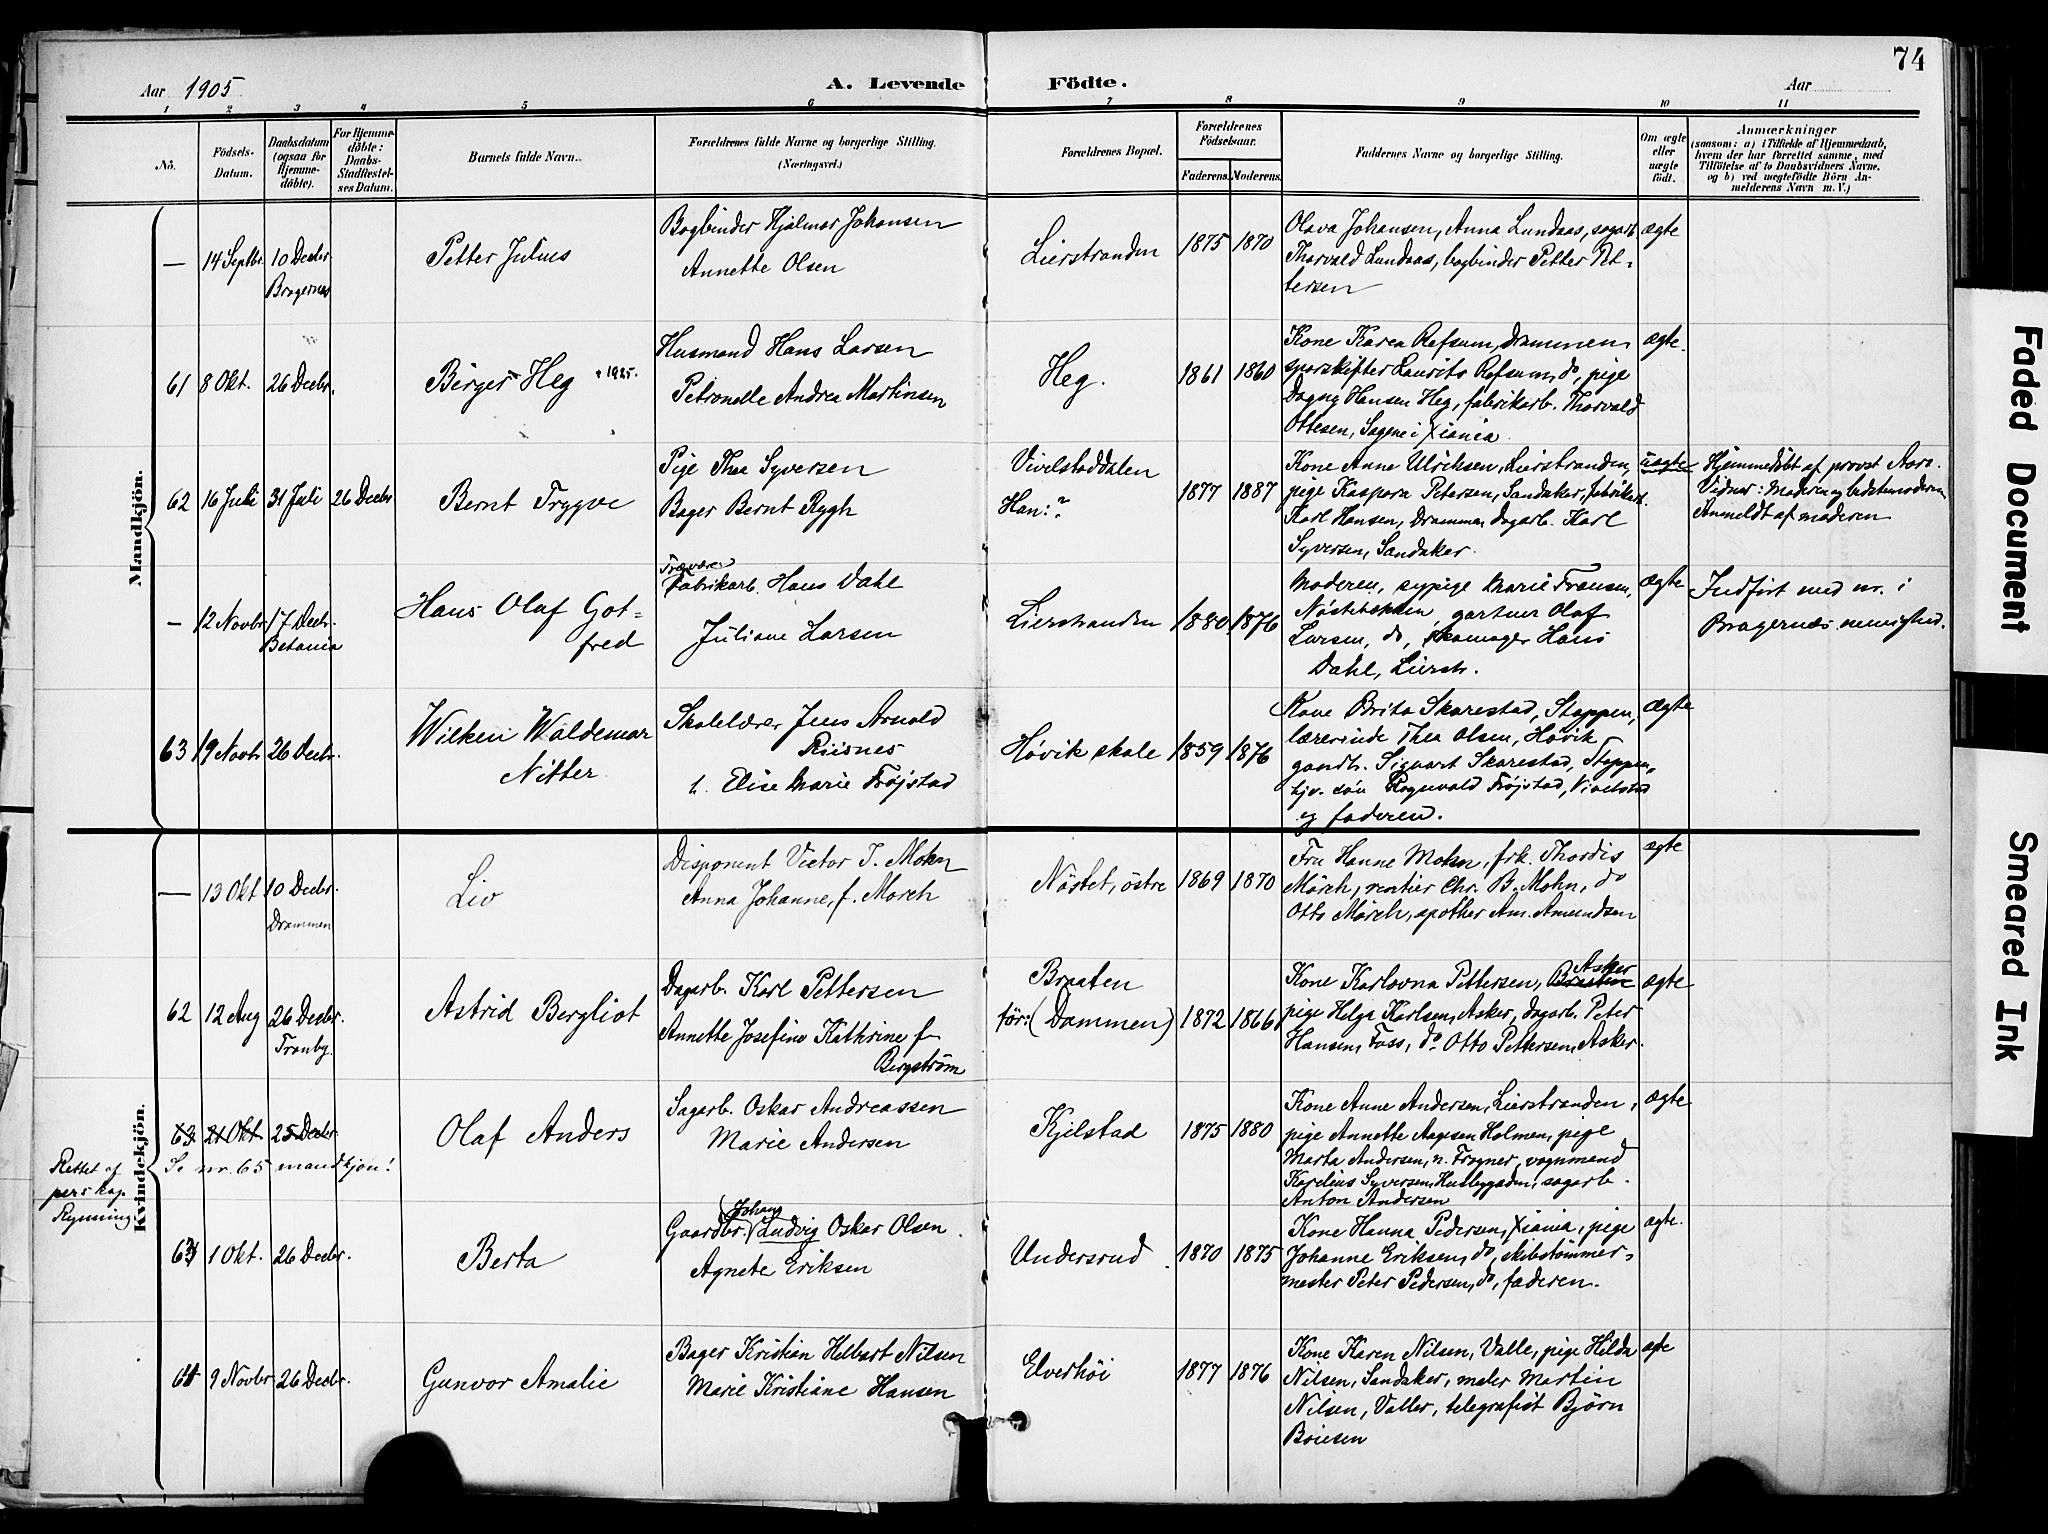 74
Aar 1905
A. Levende Födte.
Aar
1 2 3 4 5 6 7 8 9 10 11
No.
Födsels-
Datum.
Daabsdatum
(ogsaa for
Hjemme-
döbte).
For Hjemme-
döbte:
Daabs-
Stadfæstel-
ses Datum.
Barnets fulde Navn.
Forældrenes fulde Navne og borgerlige Stilling.
(Næringsvei.)
Forældrenes Bopæl.
Forældrenes
Födselsaar.
Faderens. Moderens.
Faddernes Navne og borgerlige Stilling.
Om ægte
eller
uægte
födt.
Anmærkninger
(saasom: a) i Tilfælde af Hjemmedaab,
hvem der har forrettet samme, med
Tilföielse af to Daabsvidners Navne,
og b) ved uægtefödte Börn An-
melderens Navn m. V.)
Mandkjön.
— 14 Septbr. 10 Decbr.
Bragernæs
Petter Julius
Bogbinder Hjalmar Johansen
Annette Olsen
Lierstranden
1875 1870
Olava Johansen, Anna Lundaas, sagarb.
Thorvald Lundaas, bogbinder Petter Pet-
tersen
ægte
61 8 Okt. 26 Decbr.
Birger Heg + 1925.
Husmand Hans Larsen
Petronelle Andrea Martinsen
Heg.
1861 1860
Kone Karen Refsum, Drammen,
sporskifter Laurits Refsum, do, pige
Dagny Hansen Heg, fabrikarb. Thorvald
Ottesen, Sagene i Xiania
ægte.
62 16 Juli 31 Juli 26 Decbr
Bernt Trygve
Pige Thea Syversen
Bager Bernt Rygh
Vivelstaddalen
Han: ?
1877 1887
Kone Anne Ulriksen, Lierstranden,
pige Kaspara Petersen, Sandaker, fabrikarb.
Karl Hansen, Drammen, dagarb. Karl
Syversen, Sandaker.
uægte
Hjemmedöbt af provst Aars.
Vidner: Moderen og bedstemoderen
Anmeldt af moderen
— 12 Novbr 17 Decbr.
Betania
Hans Olaf Got-
fred
Trævare
Fabrikarb. Hans Dahl
Juliane Larsen
Lierstranden
1880 1876
Moderen, sypige Marie Fransen,
gartner Olaf
Larsen, do, skomager Hans
Dahl, Lierstr.
ægte
Indført med nr. i
Bragernæs menighed.
63 19 Novbr 26 Decbr.
Wilken Waldemar
Nitter
Skolelærer Jens Arnold
Riisnes
h. Elise Marie Frøjstad
Høvik skole
1859 1876
Kone Brita Skarestad, Stoppen,
lærerinde Thea Olsen, Høvik
gaardbr. Sigvart Skarestad, Stoppen,
tjv. søn Ragnvald Frøjstad, Vivelstad
og faderen.
Ægte
Kvindekjön.
— 13 Okt 10 Decbr.
Drammen
Liv
Disponent Victor T. Mohn
Anna Johanne, f. Morch
Nöstet, östre
1869 1870
Fru Hanne Mohn, frk. Thordis
Mörch, rentier Chr. B. Mohn, do
Otto Mörch, apother Am. Amundsen
ægte
62 12 Aug 26 Decbr.
Tranby.
Astrid Bergliot
Dagarb. Karl Pettersen
Annette Josefine Kathrine f
Bergström
Braaten
för: (Dammen)
1872 1866
Asker
Kone Karlovna Pettersen, Braaten
pige Helga Karlsen, Asker, dagarb. Peter
Hansen, Foss, do Otto Pettersen, Asker.
ægte
63 21 Okt 25 Decbr
Se nr. 65 mandkjön!
Rettet af
perskap.
Rynning
Olaf Anders
Sagarb. Oskar Andreassen
Marie Andersen
Kjelstad
1875 1880
Kone Anne Andersen, Lierstranden,
pige Annette Aagesen Holmen, pige
Marta Andersen, n. Frogner, vognmand
Karelius Syversen, Husbygaden, sagarb.
Anton Andersen
ægte
63 1 Okt. 26 Decbr.
Berta
Johans
Gaardbr. Ludvig Oskar Olsen
Agnete Eriksen
Undersrud
1870 1875
Kone Hanna Pedersen, Xiania, pige
Johanne Eriksen, do, skibstömmer-
mester Peter Pedersen, do, faderen.
ægte.
64 9 Novbr 26 Decbr.
Gunvor Amalie
Bager Kristian Helbart Nilsen
Marie Kristiane Hansen
Elverhöi
1877 1876
Kone Karen Nilsen, Valle, pige Hilda
Nilsen, Sandaker, maler Martin
Nilsen, Valler, telegrafist Björn
Boiesen
ægte
Faded Document
Smeared Ink